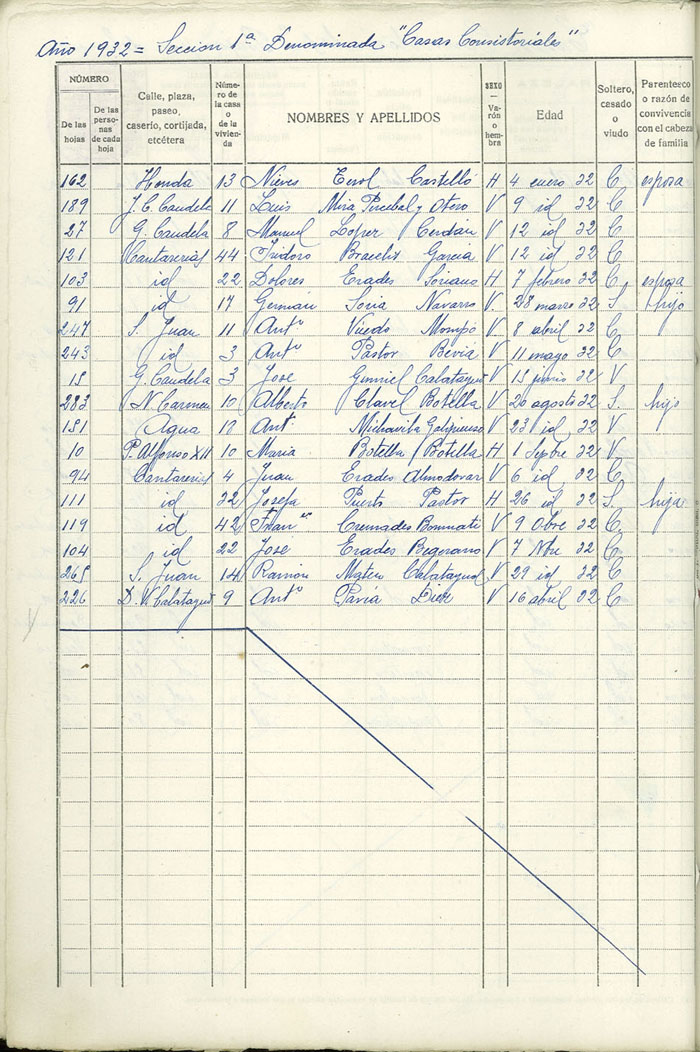 Año 1932 = Seccion 1ª Denominada "Casas Consistoriales"
NÚMERO
De las hojas
De las personas de cada hoja
Calle, plaza, paseo, caserío, cortijada, etcétera
Número de la casa o de la vivienda
NOMBRES Y APELLIDOS
SEXO — Varón o hembra
Edad
Soltero, casado o viudo
Parentesco o razón de convivencia con el cabeza de familia
162 Honda 13 Nieves Castelló H 4 enero 32 C esposa
189 J. C. Candela 11 Luis Mira Percebal y Otero V 9 id 32 C
27 G. Candela 8 Manuel Lopez Cerdán V 12 id 32 C
121 Cantarerias 44 Isidoro Garcia V 12 id 32 C
103 id 22 Dolores Erades Soriano H 7 febrero 32 C esposa
91 id 17 Germán Soria Navarro V. 28 marzo 32 S hijo
247 S. Juan 11 Antº Mompo V 8 abril 32 C
243 id 3 Antº Pastor Beviá V 11 mayo 32 C
15 G. Candela 3 Jose Calatayud V 15 junio 32 V
283 N. Carmen 10 Alberto Clavel Botella V 20 agosto 32 S. hijo
151 Agua 17 Antº Michavila V 23 id 32 V
10 P. Alfonso XII 10 Maria Botella Botella H 1 Sepbre 32 V
94 Cantarerias 4 Juan Erades Almodovar V 6 id 32 C
111 id 32 Josefa Puerto Pastor H 26 id 32 S. hija
119 id 42 Franco Cremades Bonmati V 9 Obre 32 C
104 id 22 Jose Erades Bejerano V 7 Nbre 32 C
265 S. Juan 14 Ramón Mateu Calatayud V 29 id 32 C
226 D. V. Calatayud 9 Antº Pavia V 16 abril 32 C